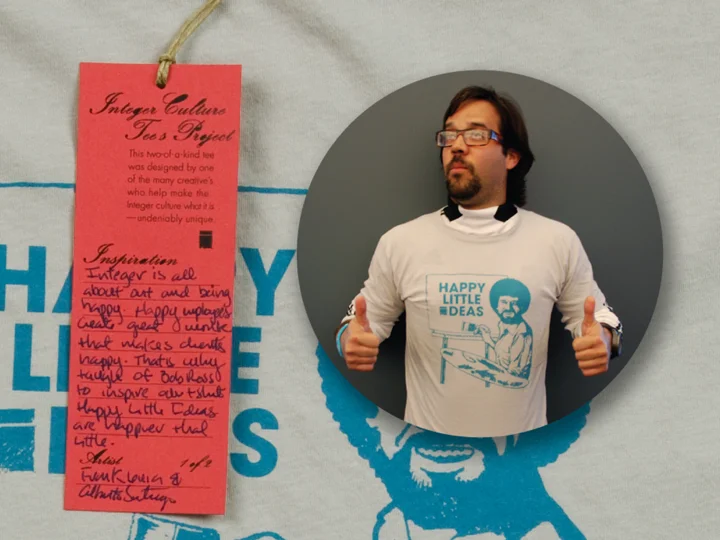 Integer Culture
Tees Project
This two-of-a-kind tee
was designed by one
of the many creative's
who help make the
Integer culture what it is
—undeniably unique.
Inspiration
Integer is all
about art and being
happy. Happy employees
create great
that makes clients
happy. That's why
of Bob Ross
to inspire our t-shirt
Happy Little Ideas
are happier that
little.
Artist 1 of 2
Frank &
Alberto
HAPPY
LITTLE
IDEAS
HAPPY
LITTLE
IDEAS